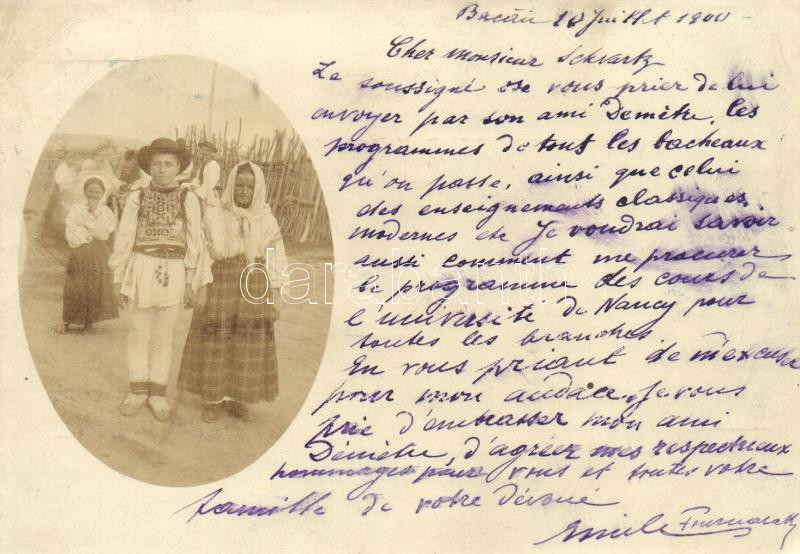 Bacău 10 Juillet 1900
Cher monsieur Schvartz
Le soussigné ose vous prier de lui
envoyer par son ami Demètre, les
programmes de tout les bacheaux
qu'on passe, ainsi que celui
des enseignements classiques,
modernes etc Je voudrai savoir
aussi comment me procurer
le programme des cours de
l'université de Nancy pour
toutes les branches.
En vous priant de m'excuser
pour mon audace, Je vous
prie d'embrasser mon ami
Démètre, d'agréer mes respectueux
hommages pour vous et toutes votre
famille de votre dévoué
Emile
darabanth